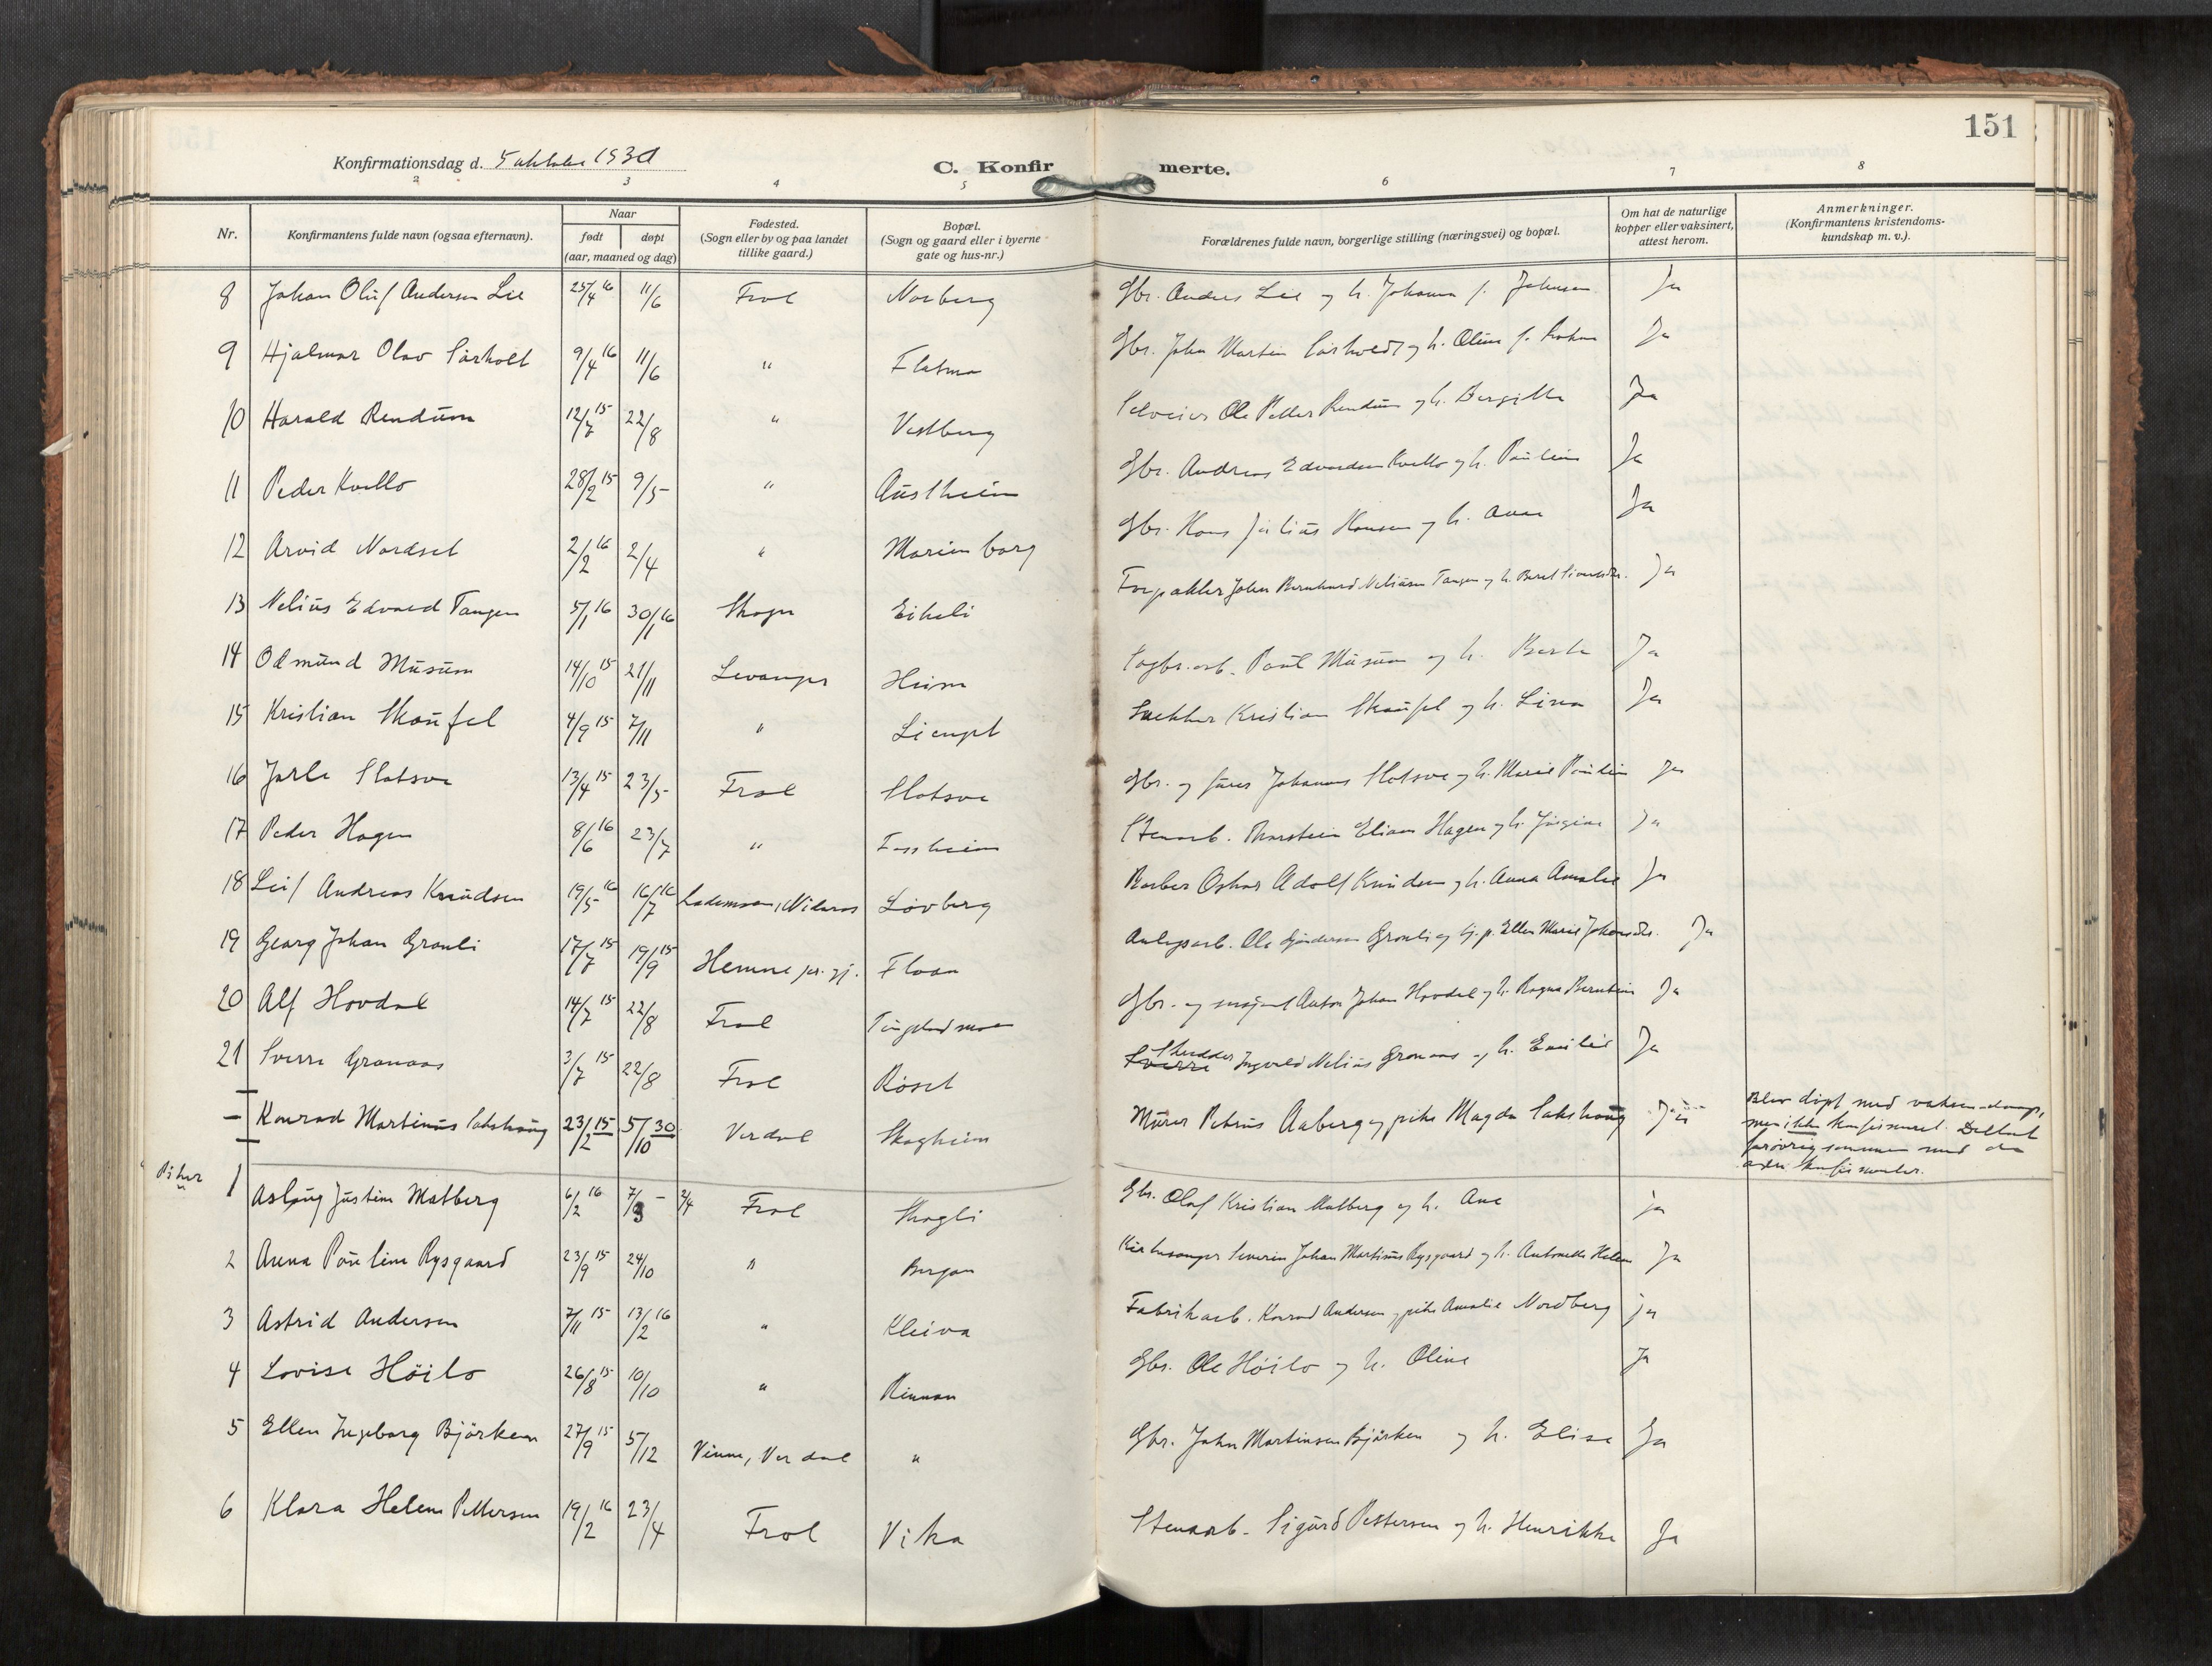 151
Konfirmationsdag d. 5 oktober 1930
C. Konfirmerte.
2 3 4 5 6 7 8
Nr.
Konfirmantens fulde navn (ogsaa efternavn).
Naar
født døpt
(aar, maaned og dag)
Fødested.
(Sogn eller by og paa landet
tillike gaard.)
Bopæl.
(Sogn og gaard eller i byerne
gate og hus-nr.)
Forældrenes fulde navn, borgerlige stilling (næringsvei) og bopæl.
Om hat de naturlige
kopper eller vaksinert,
attest herom.
Anmerkninger.
(Konfirmantens kristendoms-
kundskap m. v.).
8 Johan Oluf Andersen Lie 25/4 16 11/6 Frol Norberg Gbr. Anders Lie og h. Johanna f. Johnsen Ja
9 Hjalmar Olav Sørholt 9/4 16 11/6 " Flatmo Gbr. John Martin og h. Oline f. Ja
10 Harald Rendum 12/7 15 22/8 " Vestberg Selveier Ole Petter Rendum og h. Bergitte Ja
11 Peder Kvello 28/2 15 9/5 " Austheim Gbr. Andreas Edvardsen Kvello og h. Pauline Ja
12 Arvid Nordset 2/2 16 2/4 " Marienborg Gbr. Hans Julius Hansen og h. Anna Ja
13 Nelius Edvard Tangen 5/1 16 30/1 16 Skogn Eikeli Forpakter Johan Bernhard Neliusen Tangen og h. Beret Ja
14 Odmund Musum 14/10 15 21/11 Levanger Heim Sagbr.arb. Paul Musum og h. Berta Ja
15 Kristian Skaufel 4/9 15 7/11 " Liengt Snekker Kristian Skaufel og h. Lina Ja
16 Jarle Slotsve 13/4 15 23/5 Frol Slotsve Gbr. og Johannes Slotsve og h. Marie Pauline Ja
17 Peder Hagen 8/6 16 23/7 " Fossheim Stenarb. Torstein Elian Hagen og h. Jørgine Ja
18 Leif Andreas Knudsen 19/5 16 16/7 16 Lademoen, Nidaros Løvberg Barber Oskar Adolf Knudsen og h. Anna Amalie Ja
19 Georg Johan Grønli 17/7 15 19/9 15 Hemne pr.gj. Floan Anlegsarb. Ole Grønli og Ellen Marie Johansdtr. Ja
20 Alf Hovdal 14/7 15 22/8 Frol Gbr. og Anton Johan Hovdal og h. Ragna Berntine Ja
21 Sverre Granaas 3/7 15 22/8 Frol Røset Sverre Skredder Ingvald Nelius Granaas og h. Emilie Ja
— Konrad Martinus Sakshaug 23/2 15 5/10 30 Verdal Skogheim Murer Petrus Aaberg og pike Magda Sakshaug Ja Blev døpt med voksen-daap,
men ikke konfirmeret. Deltok
forøvrig sammen med de
andre konfirmanter.
Piker
1 Aslaug Justine Matberg 6/2 16 7/3 – 2/4 Frol Skogli Gbr. Olaf Kristian Matberg og h. Ane ja
2 Anna Pauline Rysgaard 23/9 15 24/10 " Borgan Kirkesanger Severin Johan Martinus Rysgaard og h. Antonette Helene Ja
3 Astrid Andersen 7/11 15 13/2 16 " Kleiva Fabrikarb. Konrad Andersen og pike Amalie Nordberg ja
4 Lovise Höilo 26/8 15 10/10 " Rinnan Gbr. Ole Höilo og h. Oline Ja
5 Ellen Ingeborg Björken 27/9 15 5/12 Vinne, Verdal " Gbr. John Martinsen Björken og h. Elise Ja
6 Klara Helene Pettersen 19/2 16 23/4 Frol Vika Stenarb. Sigurd Pettersen og h. Henrikke Ja